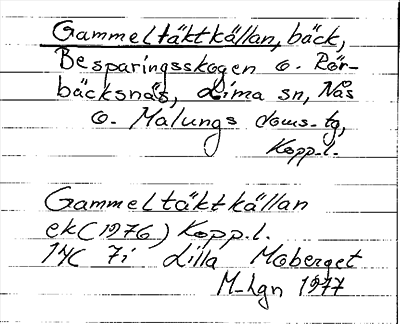 Gammeltäktkällan, bäck,
Besparingsskogen o. Rör-
bäcksnäs, Lima sn, Nås
o. Malungs doms.tg,
Kopp.l.
Gammeltäktkällan
ek(1976) Kopp.l.
14C 7i Lilla Moberget
M-Lgn 1977